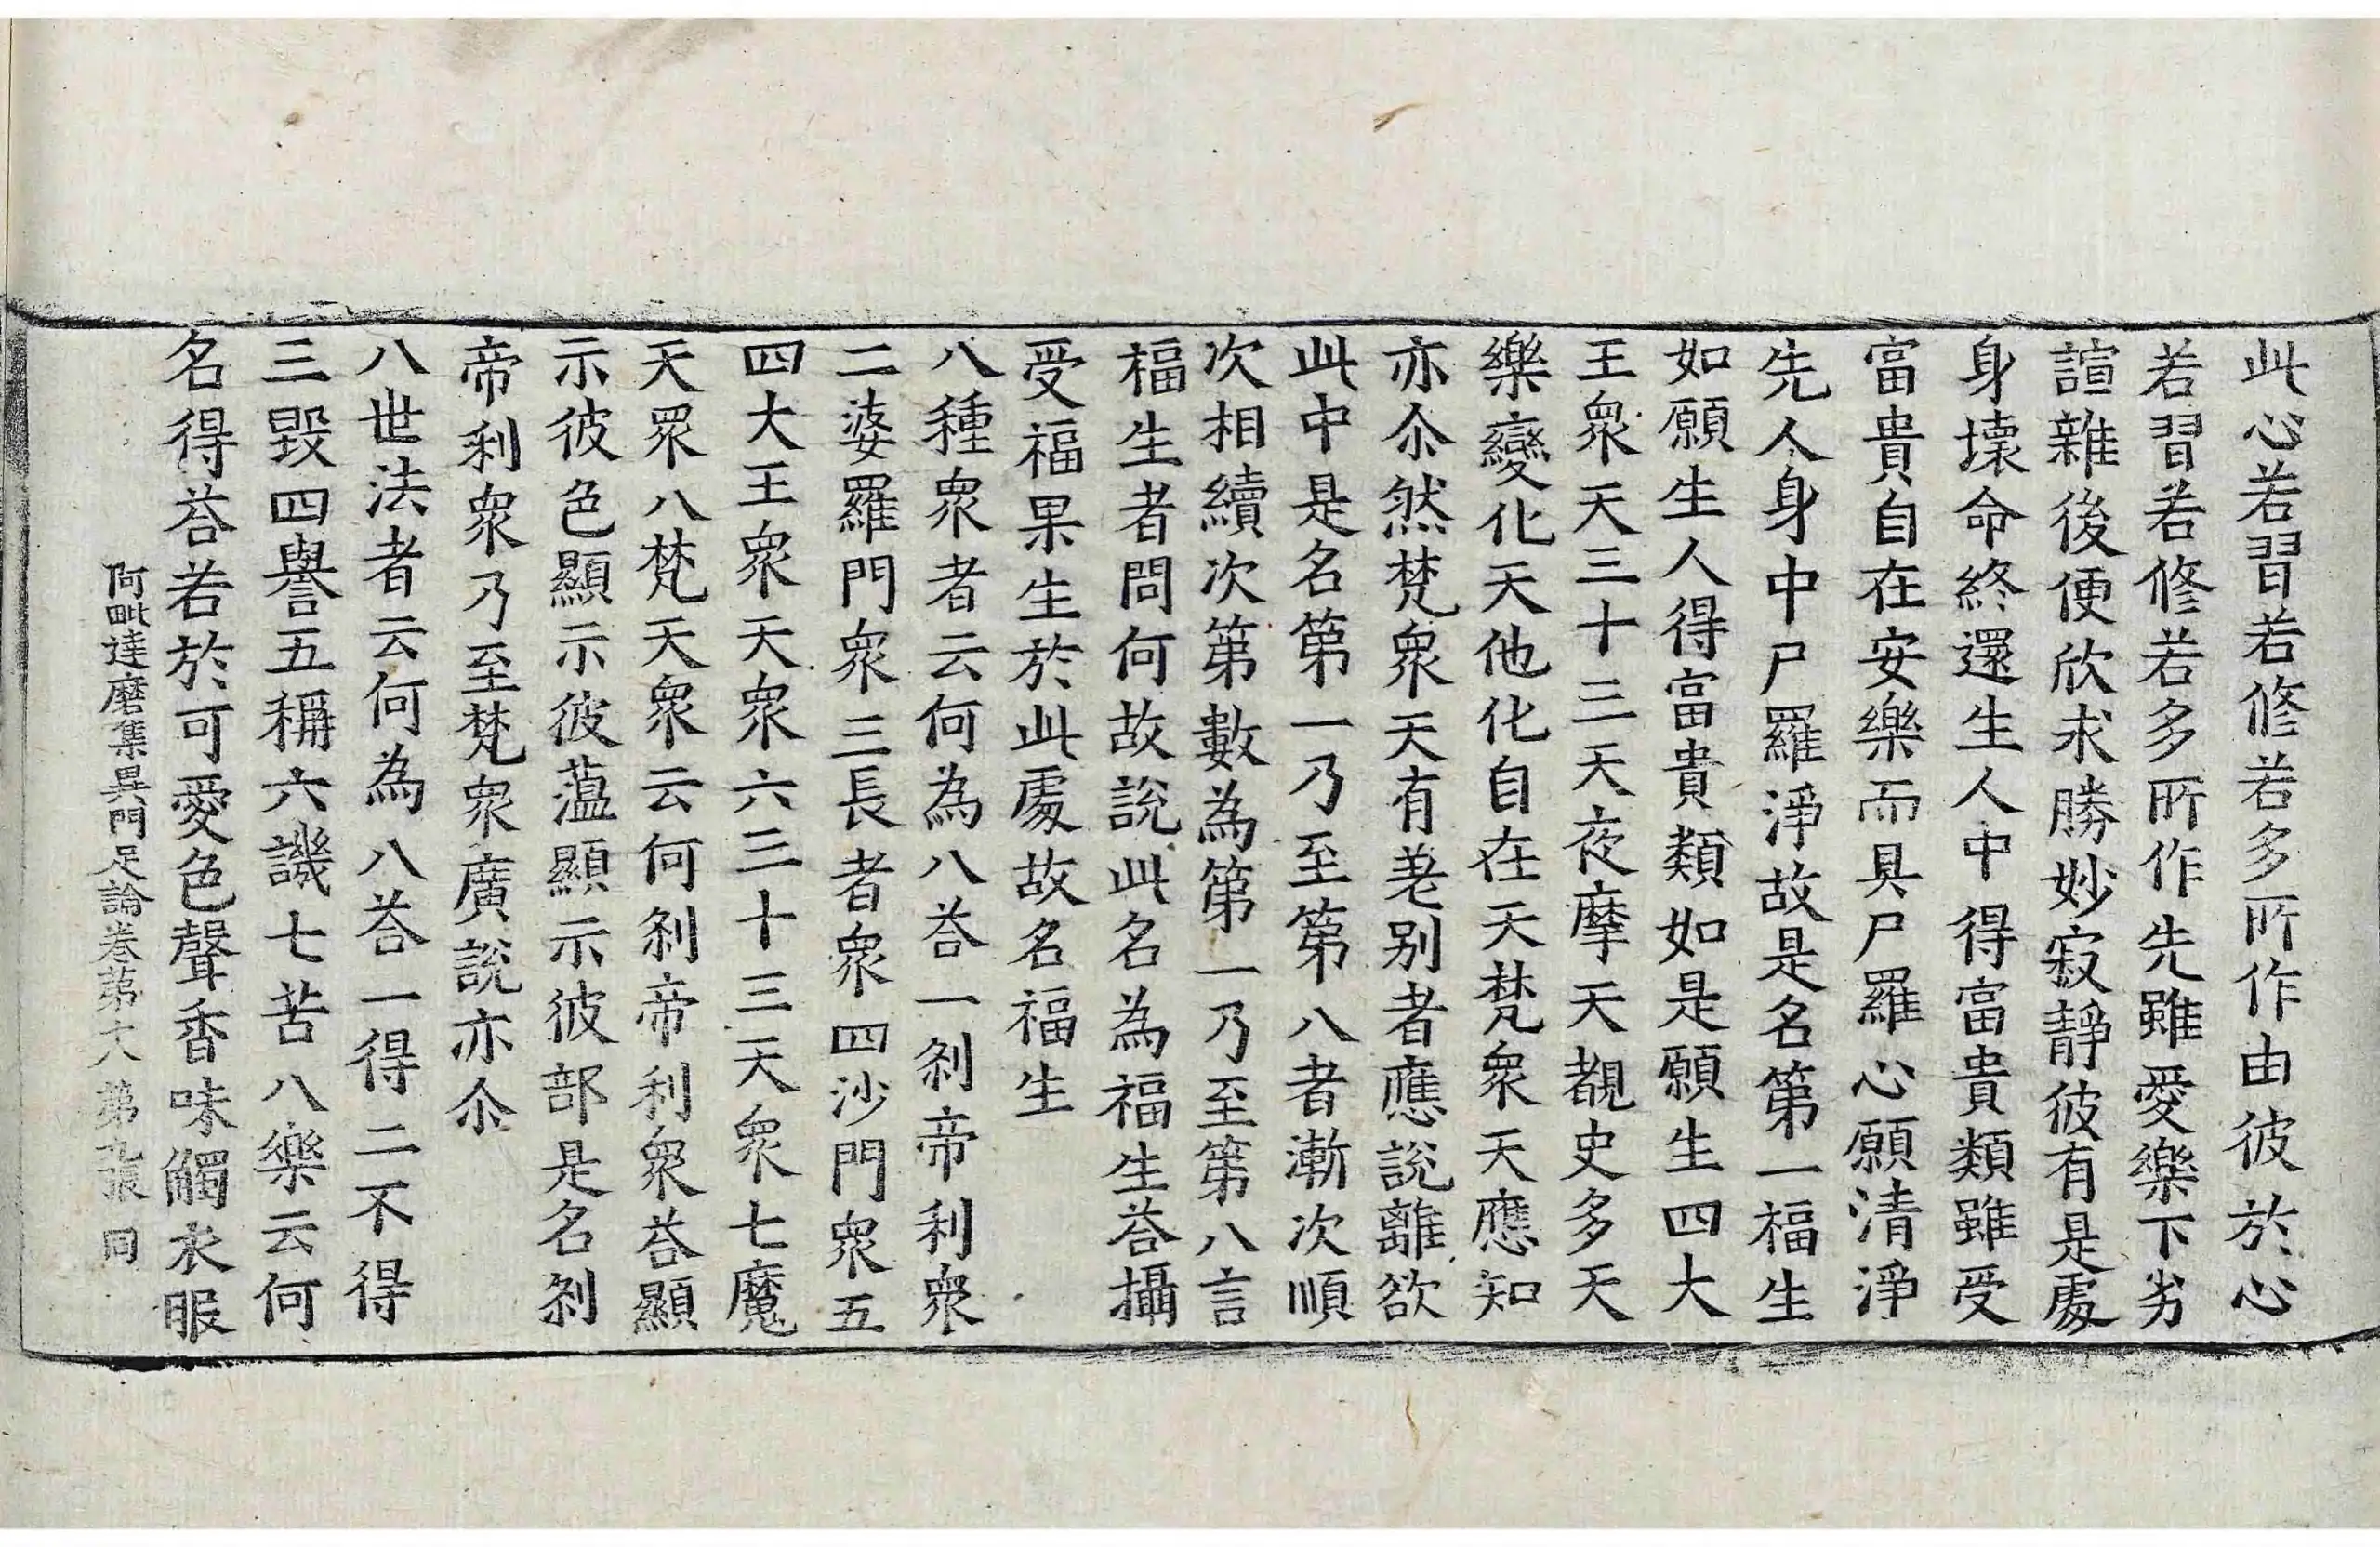 此心若習若修若多所作由彼於心
若習若修若多所作先雖愛樂下劣
諠雜後便欣求勝妙寂靜彼有是處
身壞命終還生人中得富貴類雖受
富貴自在安樂而具尸羅心願清淨
先人身中尸羅淨故是名第一福生
如願生人得富貴類如是願生四大
王衆天三十三天夜摩天覩史多天
樂變化天他化自在天梵衆天應知
亦尒然梵衆天有差别者應說離欲
此中是名第一乃至第八者漸次順
次相續次第數為第一乃至第八言
福生者問何故說此名為福生荅攝
受福果生於此處故名福生
八種衆者云何為八荅一剎帝利衆
二婆羅門衆三長者衆四沙門衆五
四大王衆天衆六三十三天衆七魔
天衆八梵天衆云何剎帝利衆荅顯
示彼色顯示彼薀顯示彼部是名剎
帝利衆乃至梵衆廣說亦尒
八世法者云何為八荅一得二不得
三毀四譽五稱六譏七苦八樂云何
名得荅若於可愛色聲香味觸衣服
阿毗達磨集異門足論卷第十八 第九張 同